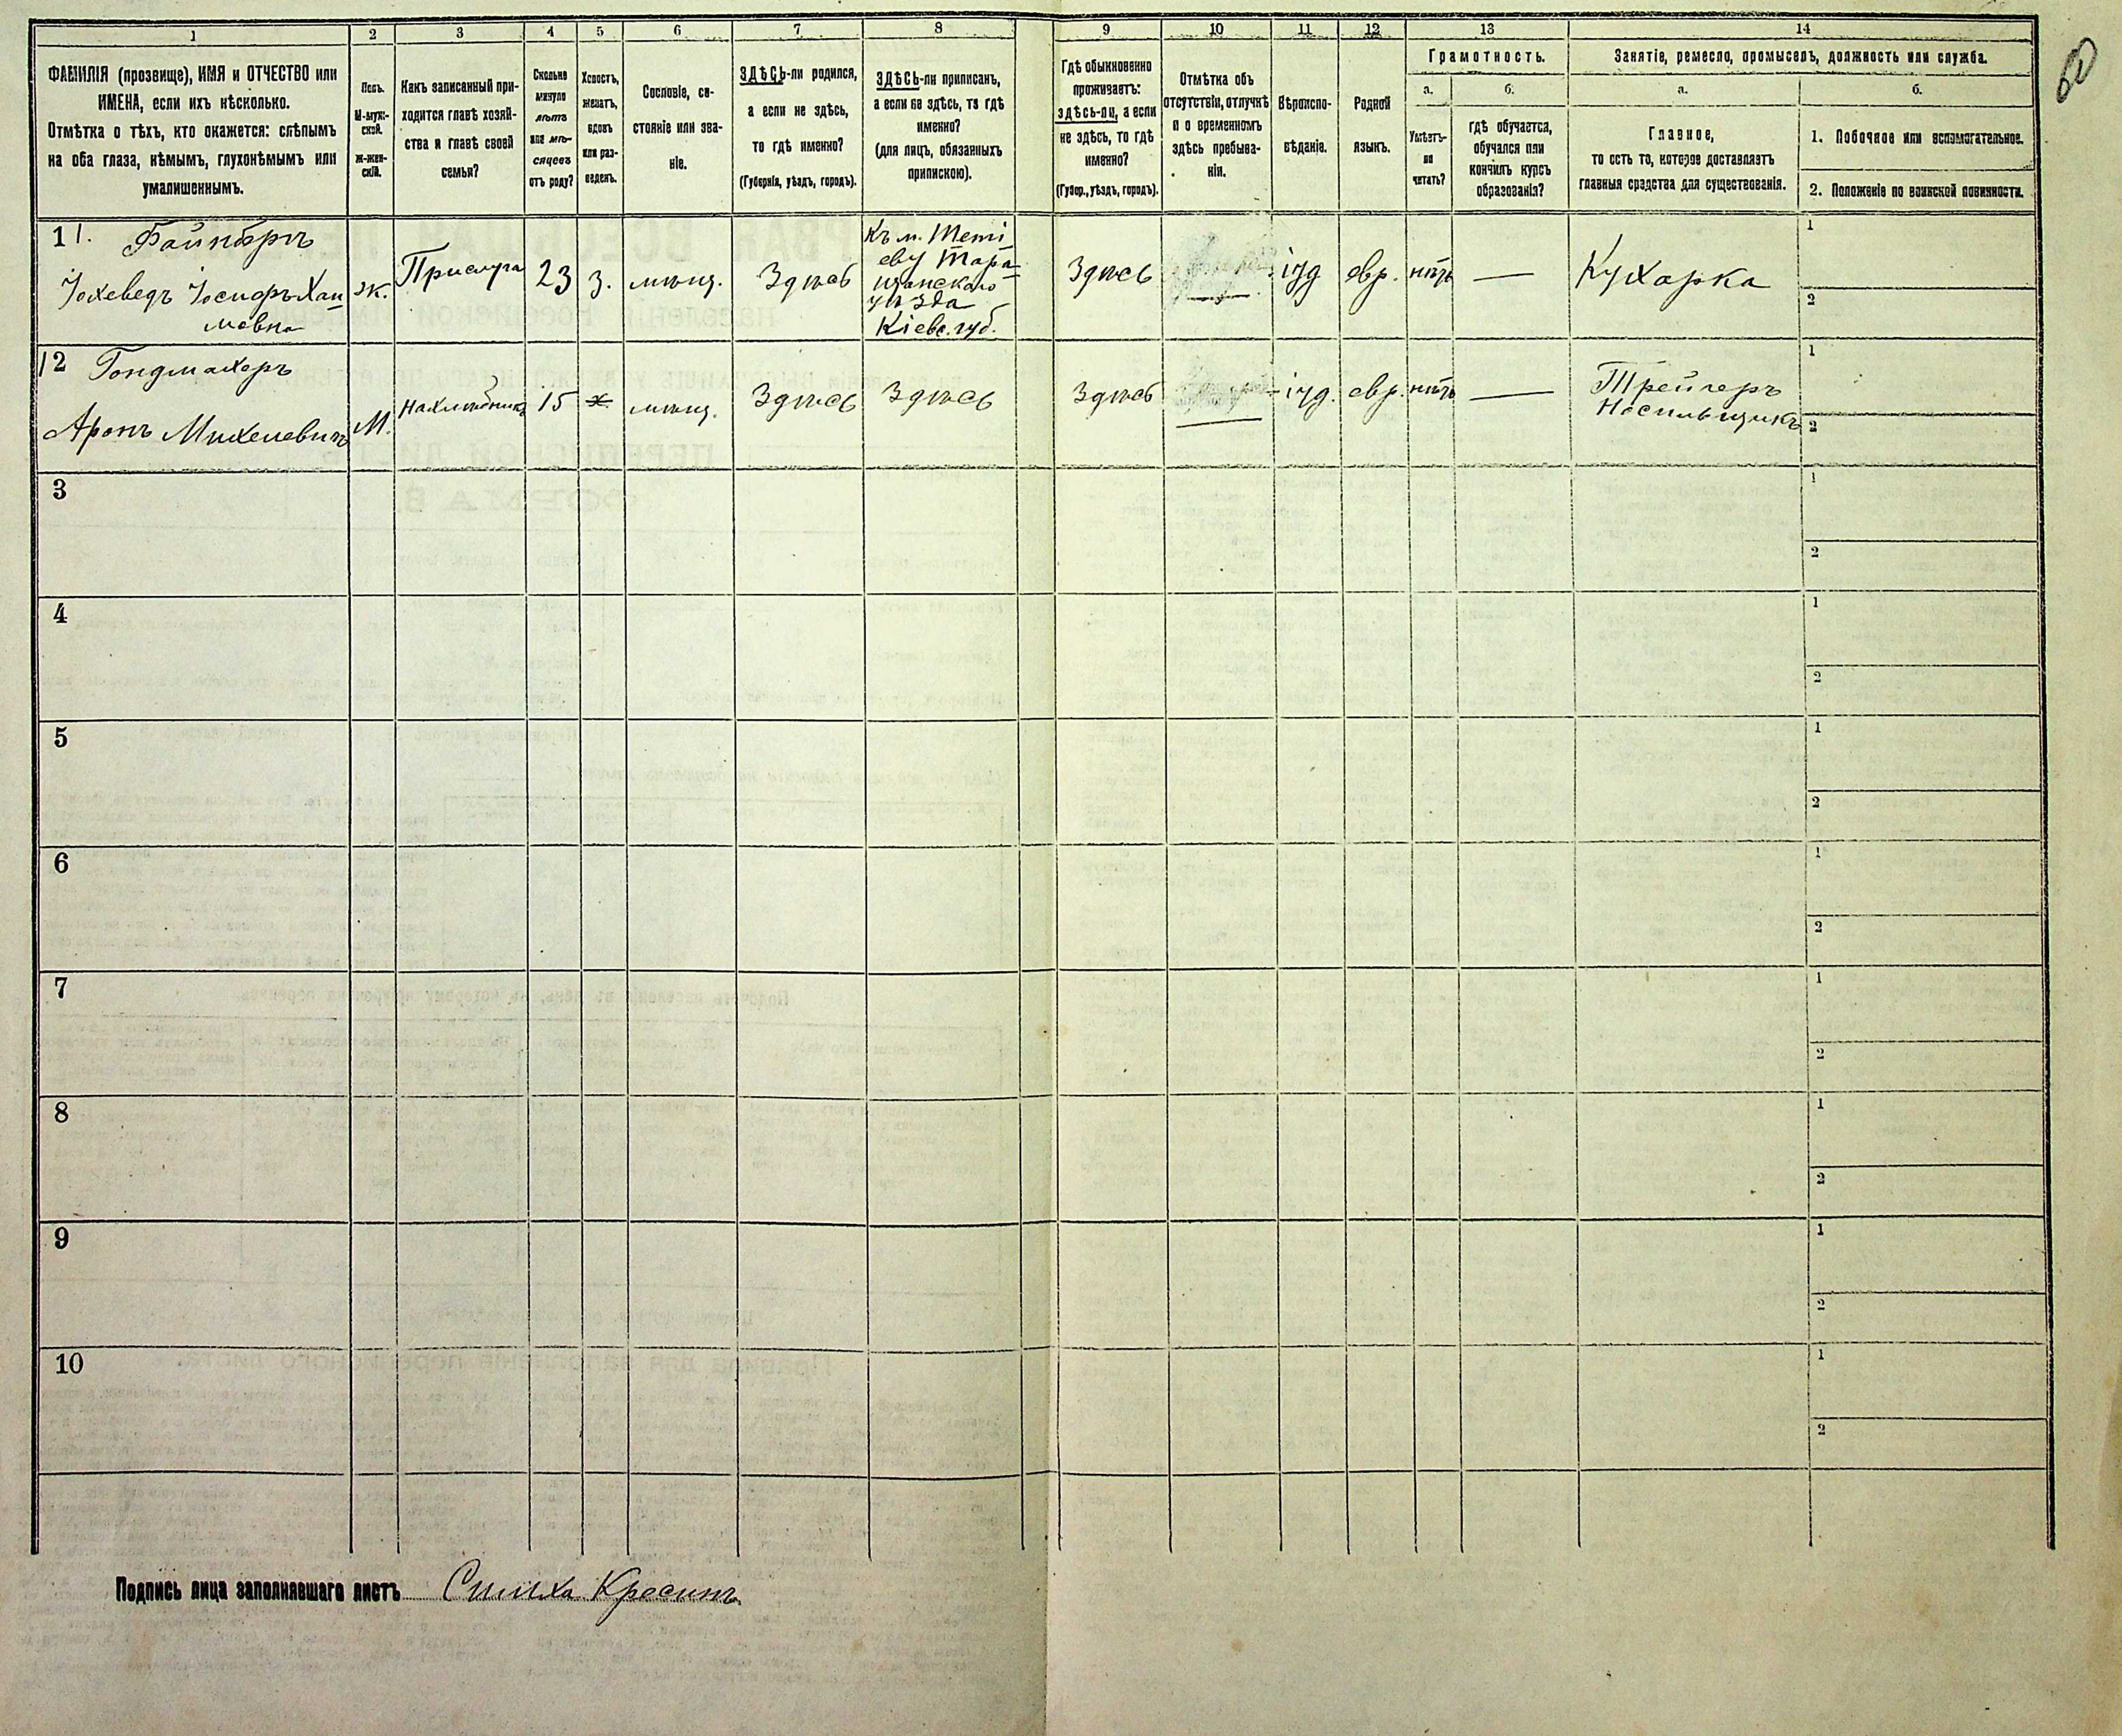 1
2
3
4
5
6
7
8
9
10
11
12
13
14
ФАМИЛІЯ (прозвище), ИМЯ и ОТЧЕСТВО или
ИМЕНА, если ихъ нѣсколько.
Отмѣтка о тѣхъ, кто окажется: слѣпымъ
на оба глаза, нѣмымъ, глухонѣмымъ или
умалишеннымъ.
Полъ.
М-муж-
ской.
Ж-жен-
скій.
Какъ записанный при-
ходится главѣ хозяй-
ства и главѣ своей
семьи?
Сколько
минуло
лѣтъ
или мѣ-
сяцевъ
отъ роду?
Холостъ,
женатъ,
вдовъ
или раз-
веденъ.
Сословіе, со-
стояніе или зва-
ніе.
ЗДѢСЬ-ли родился,
а если не здѣсь,
то гдѣ именно?
(Губернія, уѣздъ, городъ).
ЗДѢСЬ-ли приписанъ,
а если не здѣсь, то гдѣ
именно?
(для лицъ, обязанныхъ
припискою).
Гдѣ обыкновенно
проживаетъ:
здѣсь-ли, а если
не здѣсь, то гдѣ
именно?
(Губер., уѣздъ, городъ).
Отмѣтка объ
отсутствіи, отлучкѣ
и о временномъ
здѣсь пребыва-
ніи.
Вѣроиспо-
вѣданіе.
Родной
языкъ.
Грамотность.
а.
б.
Умѣетъ-
ли
читать?
гдѣ обучается,
обучался или
кончилъ курсъ
образованія?
Занятіе, ремесло, промыселъ, должность или служба.
а.
б.
Главное,
то есть то, которое доставляетъ
главныя средства для существованія.
1. Побочное или вспомогательное.
2. Положеніе по воинской повинности.
1 1. Файнбергъ
Іохеведъ Іосифъ Хаи
мовна
ж.
Прислуга
23
з.
мѣщ.
Здѣсь
Къ м. Теті
еву Тара
щанскаго
уѣзда
Кіевс. губ.
Здѣсь
—
іуд
евр.
нѣтъ
—
Кухарка
1
2
12 Гондмахеръ
Аронъ Михелевичъ
М.
Нахлѣбникъ
15
х.
мѣщ.
Здѣсь
Здѣсь
Здѣсь
—
іуд.
евр.
нѣтъ
—
Трейгеръ
Носильщикъ
1
2
3
1
2
4
1
2
5
1
2
6
1
2
7
1
2
8
1
2
9
1
2
10
1
2
Подпись лица заполнявшаго листъ Симха Кресинъ